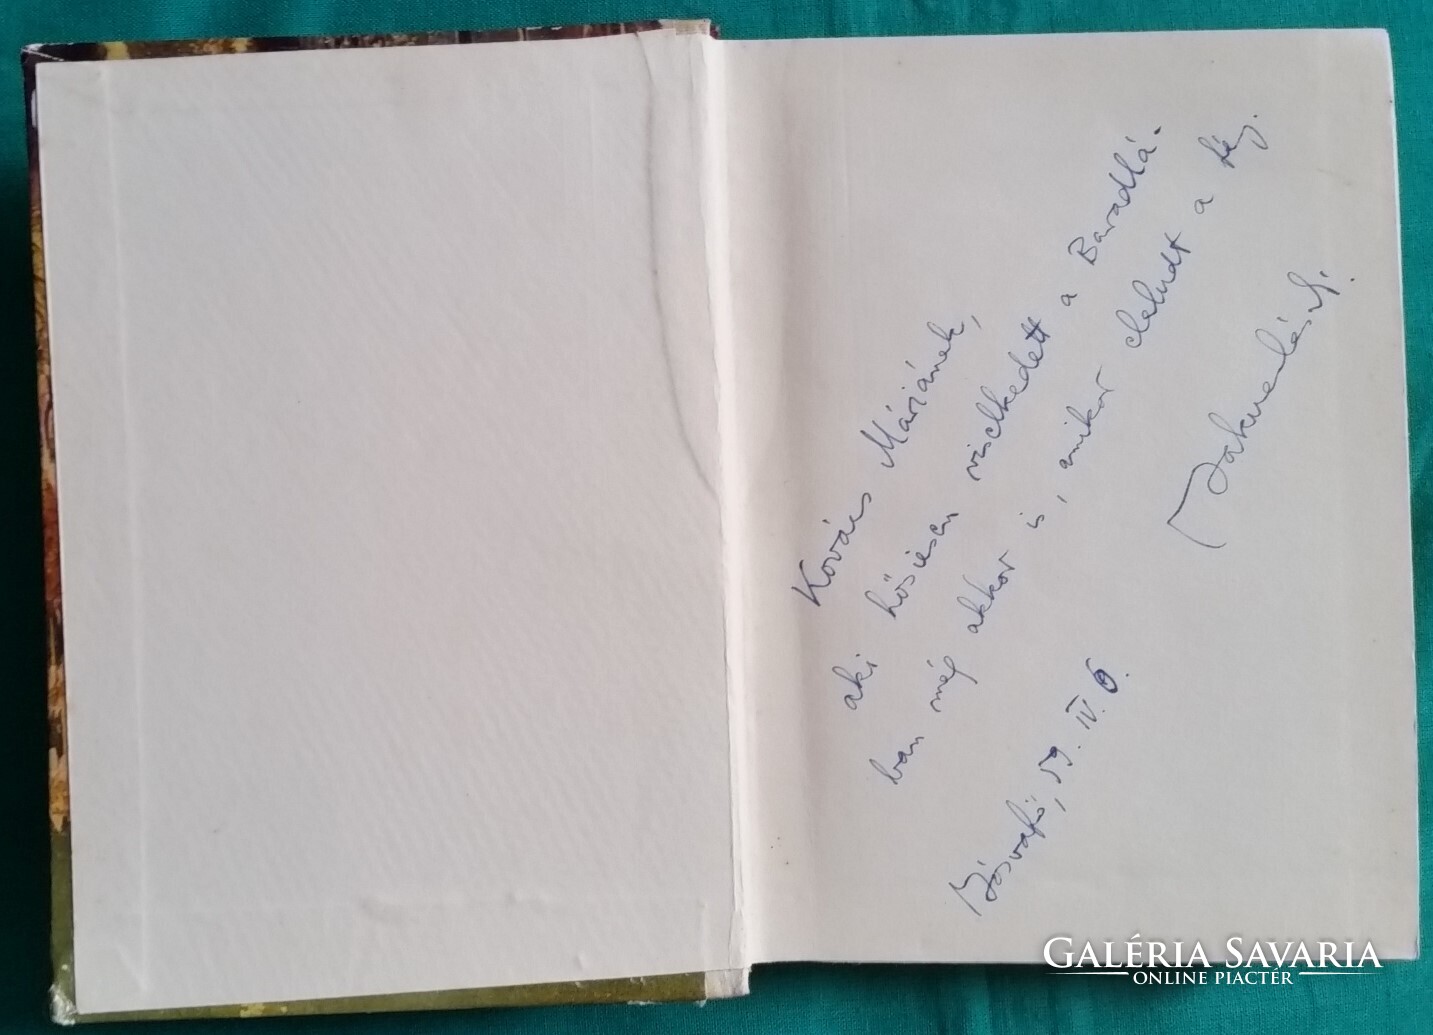 Kovács Máriának,
aki hősiesen viselkedett a Baradlá-
ban még akkor is, amikor elaludt a fény.
Jósvafő, 59. IV. 6.
Jakucs László
GALÉRIA SAVARIA
ONLINE PIACTÉR